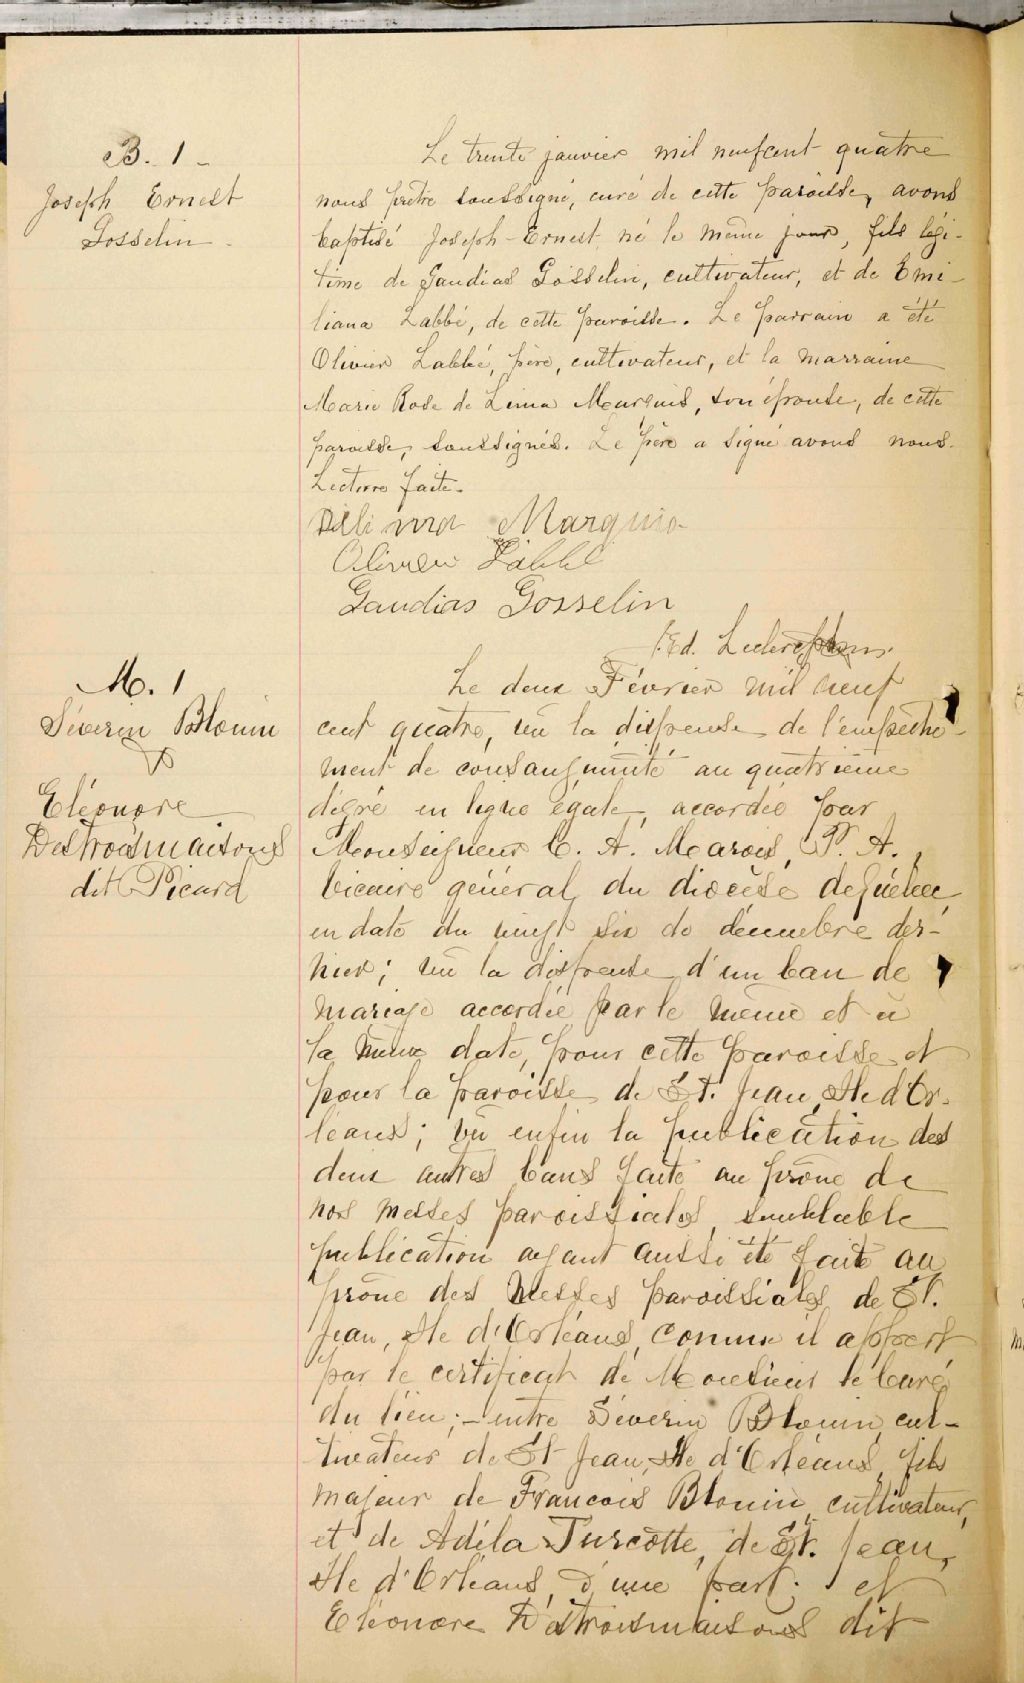 B. 1 -
Joseph Ernest
Gosselin -
Le trente janvier mil neufcent quatre
nous prêtre soussigné, curé de cette paroisse, avons
baptisé Joseph-Ernest, né le même jour, fils légi-
time de Gaudias Gosselin, cultivateur, et de Emi-
liana Labbé, de cette paroisse. Le parrain a été
Olivier Labbé, père, cultivateur, et la marraine
Marie Rose de Lima Marquis, son épouse, de cette
paroisse, soussignés. Le père a signé avons nous.
Lecture faite.
Délima Marquis
Olivier Labbé
Gaudias Gosselin
F. Ed. Leclerc
M. 1
Séverin Blouin
&
Eléonore
Destroismaisons
dit Picard
Le deux Février mil neuf
cent quatre, vu la dispense de l'empêche-
ment de consanguinité au quatrième
dégré en ligne égale, accordée par
Monseigneur C. A. Marois, P. A.,
Vicaire général du diocèse de Québec,
en date du vingt six de décembre der-
nier; vu la dispense d'un ban de
mariage accordée par le même et à
la même date, pour cette paroisse et
pour la paroisse de St. Jean, Ile d'Or-
léans; vu enfin la publication des
deux autres bans faite au prône de
nos messes paroissiales, semblable
publication ayant aussi été faite au
prône des Messes paroissiales de St.
Jean, Ile d'Orléans, comme il appert
par le certificat de Monsieur le Curé
du lieu; - entre Séverin Blouin, cul-
tivateur de St Jean, Ile d'Orléans, fils
majeur de Francois Blouin, cultivateur,
et de Adéla Turcotte, de St. Jean,
Ile d'Orléans, d'une part. et
Eléonore Destroismaisons dit